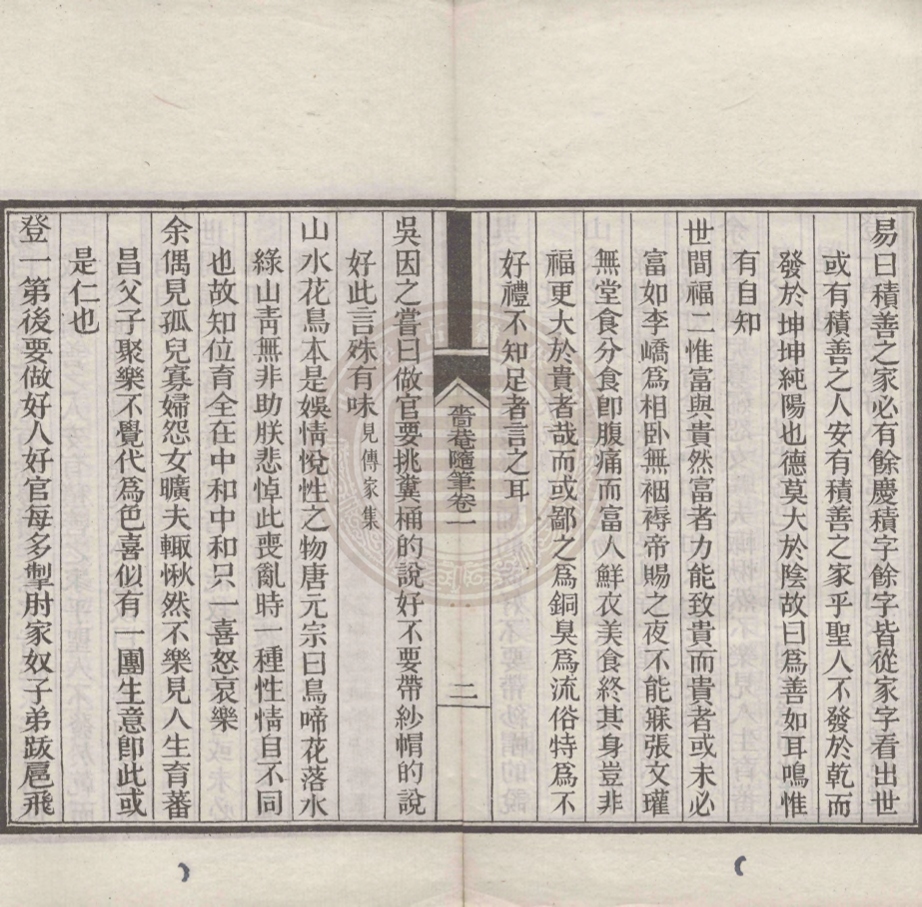 易曰積善之家必有餘慶積字餘字皆從家字看出世
或有積善之人安有積善之家乎聖人不發於乾而
發於坤坤純陽也德莫大於陰故曰爲善如耳鳴惟
有自知
世間福二惟富與貴然富者力能致貴而貴者或未必
富如李嶠爲相卧無裀褥帝賜之夜不能寐張文瓘
無堂食分食卽腹痛而富人鮮衣美食終其身豈非
福更大於貴者哉而或鄙之爲銅臭爲流俗特爲不
好禮不知足者言之耳
嗇菴隨筆卷一
二
吳因之嘗曰做官要挑糞桶的說好不要帶紗帽的說
好此言殊有味見傳家集
山水花鳥本是娛情悅性之物唐元宗曰鳥啼花落水
綠山靑無非助朕悲悼此喪亂時一種性情自不同
也故知位育全在中和中和只一喜怒哀樂
余偶見孤兒寡婦怨女曠夫輒愀然不樂見人生育蕃
昌父子聚樂不覺代爲色喜似有一團生意卽此或
是仁也
登一第後要做好人好官每多掣肘家奴子弟跋扈飛